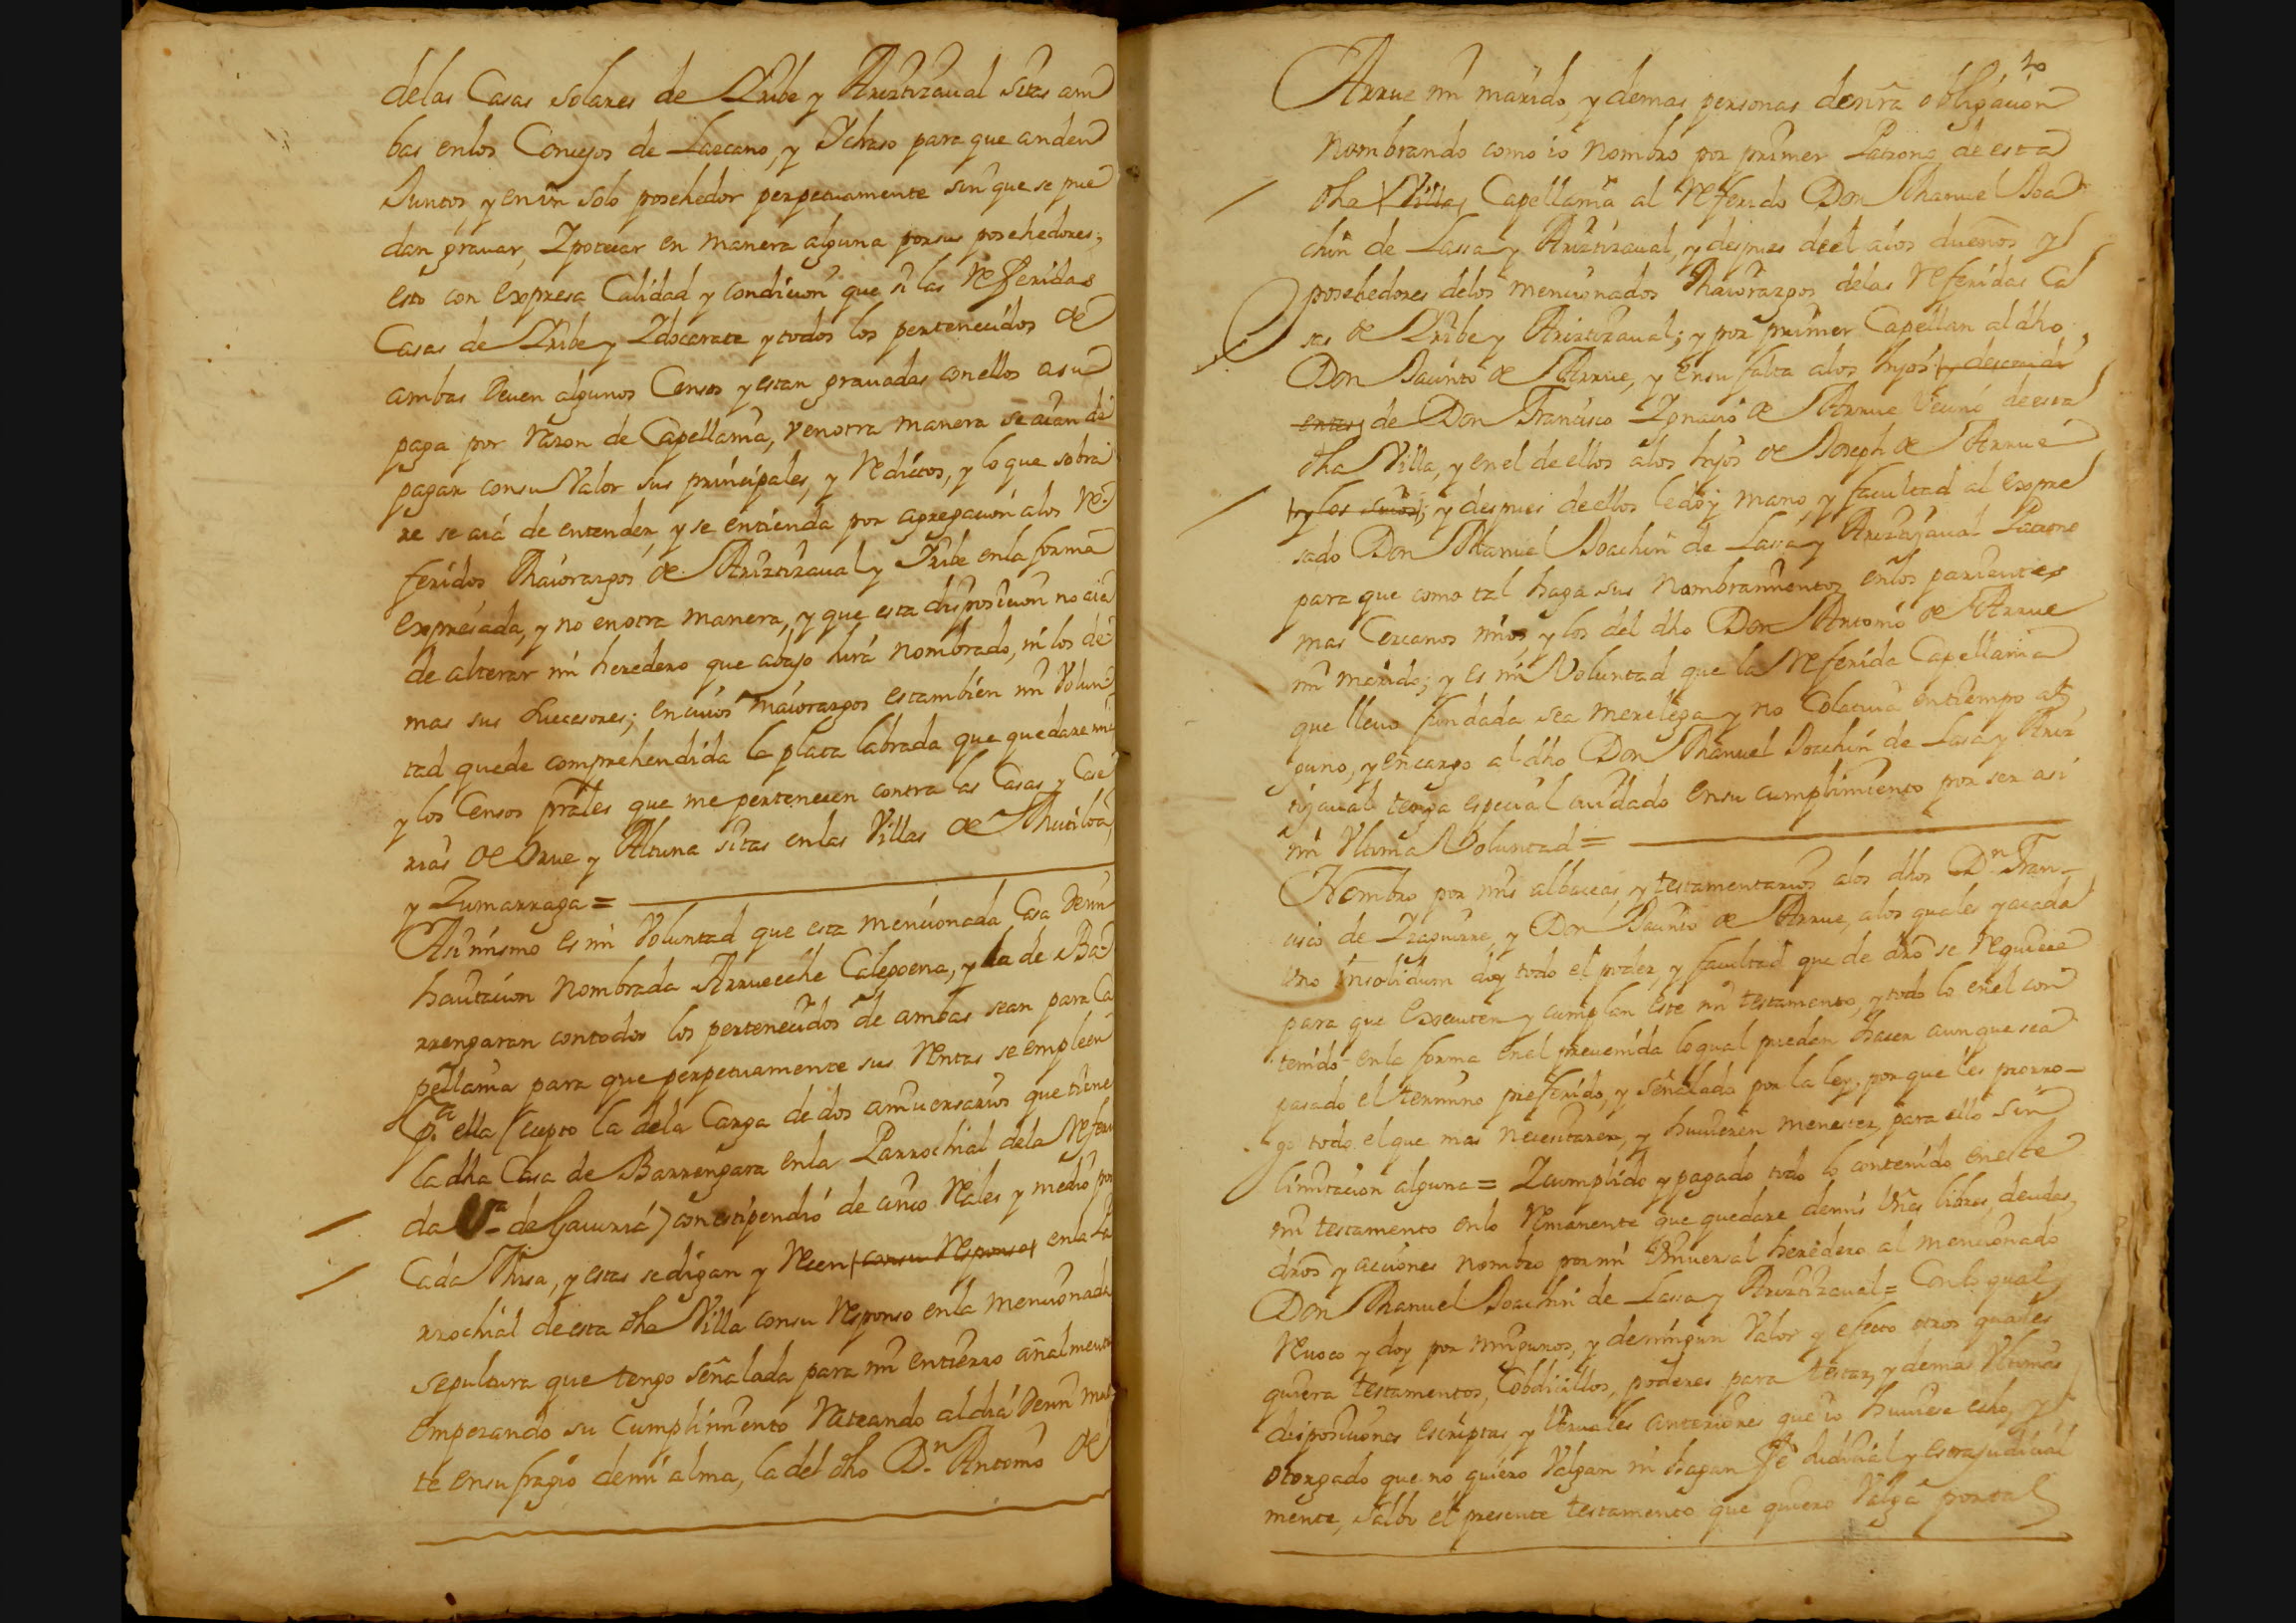 delas Casas solares de Uribe y Ariztizaual sitas am
bas enlos Concejos de Lazcano, y Ychaso para que anden
Juntos, y en un solo posehedor perpetuamente sin que se pue
dan grauar, Ypotecar en manera alguna por sus posehedores;
esto con expresa Calidad y condicion que si las Referidas
Casas de Uribe y Ydocarate y todos los pertenecidos de
ambas deuen algunos Censos y estan grauadas con ellos a su
paga por Razon de Capellania, v en otra manera se aian de
pagar con su Valor sus principales, y Redictos, y lo que sobra
re se aia de entender, y se entienda por agregacion alos Re
feridos Maiorazgos de Ariztizaual y Uribe enla forma
expresada, y no en otra manera, y que esta disposicion no aia
de alterar mi heredero que abajo hirá nombrado, ni los de
mas sus Succesores; en cuios maiorazgos es tambien mi Volun
tad quede comprehendida la plata labrada que quedare mia
y los Censos prales que me pertenecen contra las Casas y Case
rias de Orue y Altuna sitas enlas Villas de Mutiloa,
y Zumarraga =
Asi mismo es mi Voluntad que esta mencionada Casa de mi
hauitacion nombrada Arrueche Calegoena, y la de Ba
rrengaran con todos los pertenecidos de ambas sean para Ca
pellania para que perpetuamente sus Rentas se empleen
pa. ella (Cepto la dela Carga de dos aniuersarios que tiene
la dha Casa de Barrengara enla Parrochial dela Referi
da Va. de Gauiria) con estipendio de cinco Reales y medio por
Cada Missa, y estas se digan y Recen (con su Responso) enla Pa
rrochial de esta dha Villa con su Responso enla mencionada
sepultura que tengo señalada para mi entierro añalmente
empezando su Cumplimiento Rateando al dia de mi muer
te en sufragio de mi alma, la del dho Dn. Antonio de
Arrue mi marido, y demas personas de nra obligacion
Nombrando como io nombro por primer Patrono de esta
dha (Villa) Capellania al Referido Don Manuel Joa
chin de Lassa y Ariztizaual, y despues de el alos dueños y
posehedores delos mencionados Maiorazgos delas Referidas Ca
sas de Uribe y Ariztizaual; y por primer Capellan al dho
Don Jacinto de Arrue, y en su falta alos hijos (y descendi
entes) de Don Francisco Ygnacio de Arrue Vecino de esta
dha Villa, y en el de ellos alos hijos de Joseph de Arrue
(y los suios); y despues de ellos le doy mano, y facultad al expre
sado Don Manuel Joachin de Lassa y Ariztizaual Patrono
para que como tal haga sus Nombramientos enlos parientes
mas Cercanos mios, y los del dho Don Antonio de Arrue
mi marido; y es mi Voluntad que la Referida Capellania
que lleuo fundada sea merelega y no Colatiua en tiempo al
guno, y encargo al dho Don Manuel Joachin de Lasa y Ariz
tizaual tenga especial cuidado en su cumplimiento por ser asi
mi Vltima Voluntad =
Nombro por mis albaceas, y testamentarios alos dhos Dn. Fran
cisco de Yzaguirre, y Don Jacinto de Arrue, alos quales y acada
vno insolidum doy todo el poder, y facultad que de dro se Requiere
para que executen y cumplan este mi testamento, y todo lo en el con
tenido enla forma en el preuenida lo qual pueden hacer aunque sea
pasado el termino preferido, y señalado por la ley; porque les prorro
go todo el que mas necesitaren, y huuieren menester, para ello sin
limitacion alguna = Y cumplido y pagado todo lo contenido en este
mi testamento enlo Remanente que quedare de mis vnes libres, deudas,
dros, y acciones nombro por mi Vniuersal heredero al mencionado
Don Manuel Joachin de Lassa y Ariztizaual = Con lo qual
Reuoco y doy por ningunos, y de ningun Valor y efecto otros quales
quiera testamentos, Cobdicillos, poderes para testar, y demas Vltimas
disposiciones escriptas, y Vervales anteriores que io huuiese echo, y
otorgado que no quiero Valgan ni hagan fe Judicial y estrajudicial
mente, saluo el presente testamento que quiero Valga por tal